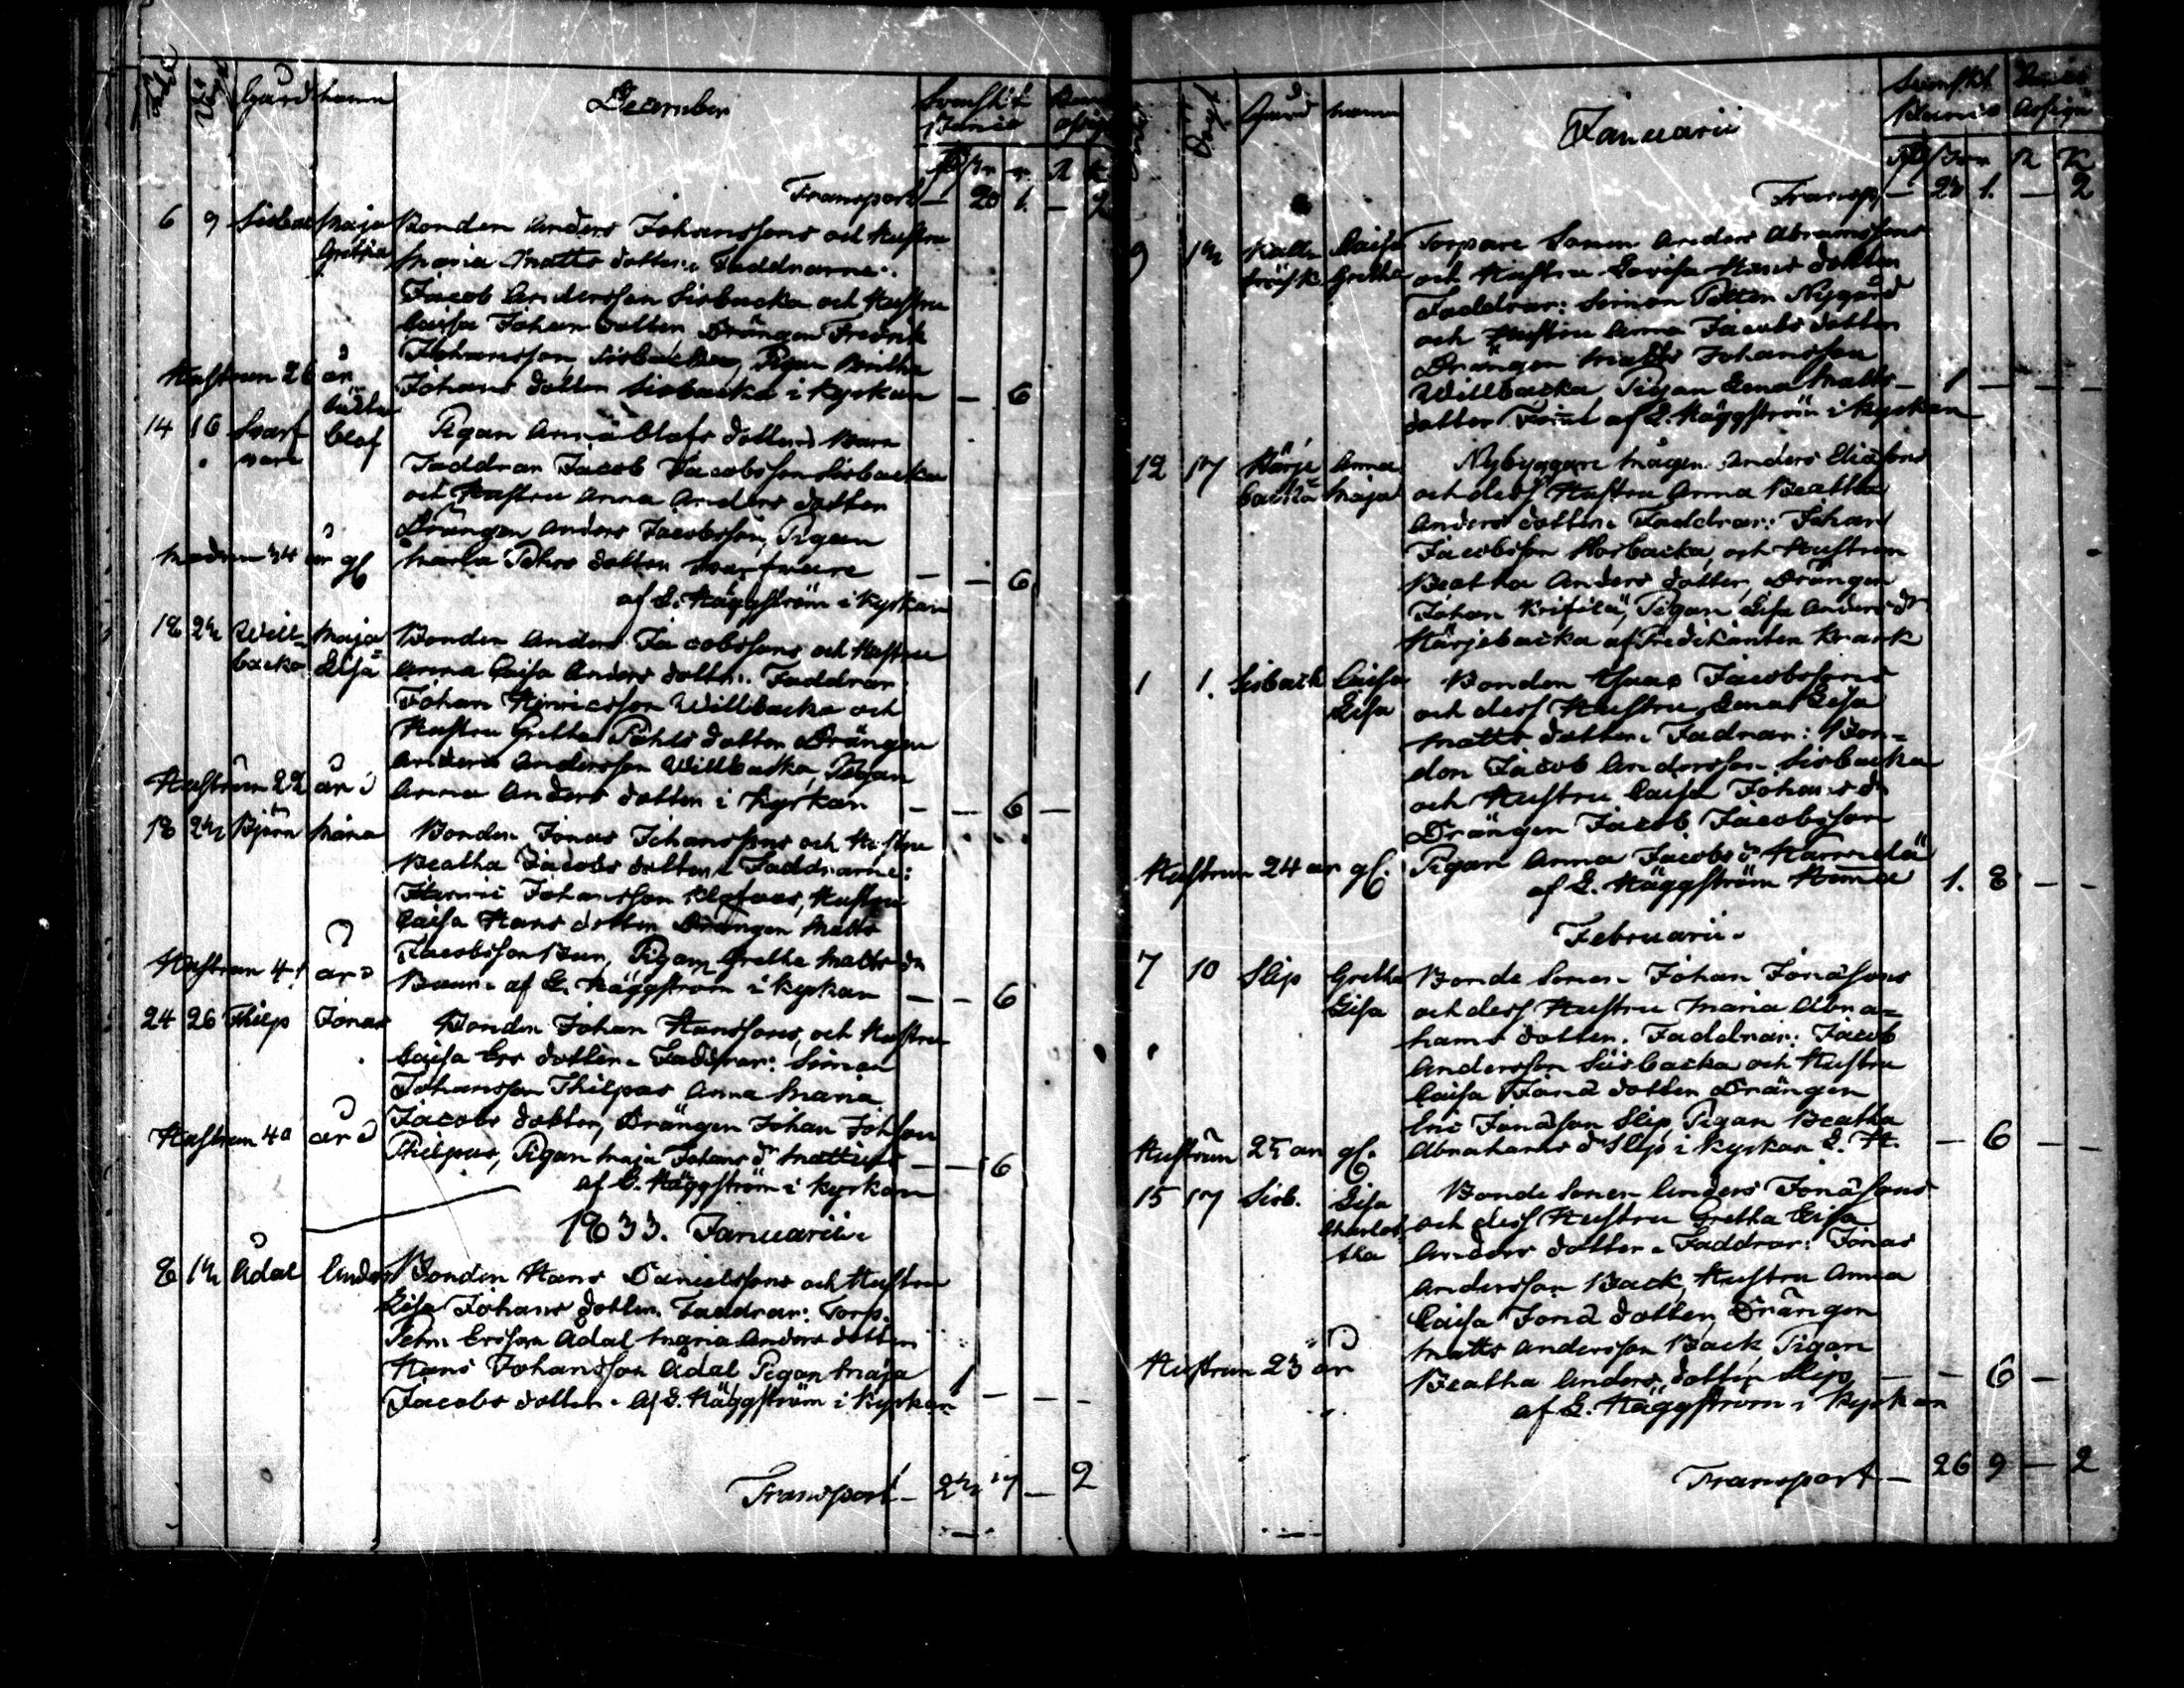 Gård
namn
December
Svenskt
Banco
Transport — 20 1. — 2
6 9 Sisbac Maja Bonden Anders Johanssons och Hustru
Gretha Maria Matts dotter. Faddrarne:
Jacob Andersson Sisbacka och Hustru
Caisa Johans dotter, Drängen Fredrik
Johansson, Sisbacka, Pigan Britha
Hustrun 26 år
Johans dotter Sisbacka i Kyrkan — 6
14 16 Svart Olof Pigan Anna Olofs dotters Barn
vare Faddrar Jacob Jacobsson Sisbacka
och Hustru Anna Anders dotter
Drängen Anders Jacobsson, Pigan
Modren 34 år gl. Maria Pehrs dotter Svartvare — — 6
af E. Häggström i Kyrkan
18 Will= Maja Bonden Anders Jacobssons och Hustru
backa Lisa Anna Caisa Anders dotter. Faddrar
Johan Hinricsson Willbacka och
Hustru Gretha Pehrs dotter Drängen
Anders Andersson Willbacka, Pigan
Hustrun 22 år
Anna Anders dotter i Kyrkan — — 6 —
18 Björn Maria Bonden Jonas Johanssons och Hustru
Beatha Jacobs dotter. Faddrarne:
Johansson Klofvar, Hustru
Caisa Hans dotter Drängen Matts
Jacobsson Bun, Pigan Gretha Matts dr
Hustrun 41 år
af E. Häggström i Kyrkan — — 6
24 26 Thilp Jonas Bonden Johan Hanssons, och Hustru
Caisa Ers dotter. Faddrar: Simon
Johansson Thilpas Anna Maria
Jacobs dotter, Drängen Johan Johsson
Hustrun 40 år
Thilpas, Pigan Maja Johans dr — — 6
af E. Häggström i Kyrkan
1833. Januarii.
8 Ådal Anders Bonden Hans Danielssons och Hustru
Lisa Johans dotter. Faddrar: Torp.
Pehr Ersson Ådal Anders dotter
Hans Johansson Ådal Pigan Maja
Jacobs dotter. Af E. Häggström i Kyrkan 1 — — -
Transport — — 2
Gård
namn
Januarii
Svenskt
Banco
Transp. — 1. — 2
9 Kall Caisa Torpare Sonen Anders Abramssons
träsk Gretha och Hustru Lovisa Hans dotter
Faddrar: Simon Petter Nygård
och Hustru Anna Jacobs dotter
Drängen Matts Johansson
Willbacka Pigan Lena Matts — 1 — — -
dotter af E. Häggström i Kyrkan
12 17 Härje Anna Nybyggare mågen Anders Eliassons
backa Maja och dess Hustru Anna Beatha
Anders dotter. Faddrar: Johan
Jacobsson och Hustrun
Beatha Anders dotter, Drängen
Johan Pigan Lisa Anders dr
Härjebacka af Predikanten Krank
1 1. Sisback Caisa Bonden Isaac Jacobssons
Lisa och dess Hustru Lena Lisa
Matts dotter. Fadrar: Bon=
den Jacob Andersson Sisbacka
och Hustru Caisa Johans dr
Drängen Jacob Jacobsson
Hustrun 24 år gl. Pigan Anna Jacobs dr
af E. Häggström Hema 1. 8 — -
Februarii.
7 10 Slip Gretha Bonde Sonen Johan Jonassons
Lisa och dess Hustru Maria Abra=
hams dotter. Faddrar: Jacob
Andersson Sisbacka och Hustru
Caisa Jona dotter Drängen
Eric Jonasson Slip Pigan Beatha
Hustrun 25 år gl. Abrahams dr Slip i Kyrkan E. H. — 6 — -
15 17 Sisb. Lisa Bonde Sonen Anders Jonassons
Charlot och dess Hustru Gretha Lisa
tha Anders dotter. Faddrar: Jonas
Andersson Back, Hustru Anna
Caisa Jona dotter, Drängen
Matts Andersson Back Pigan
Hustrun 23 år
Beatha Anders dotter Slip — — 6 —
af E. Häggström i Kyrkan
Transport — 26 9 — 2